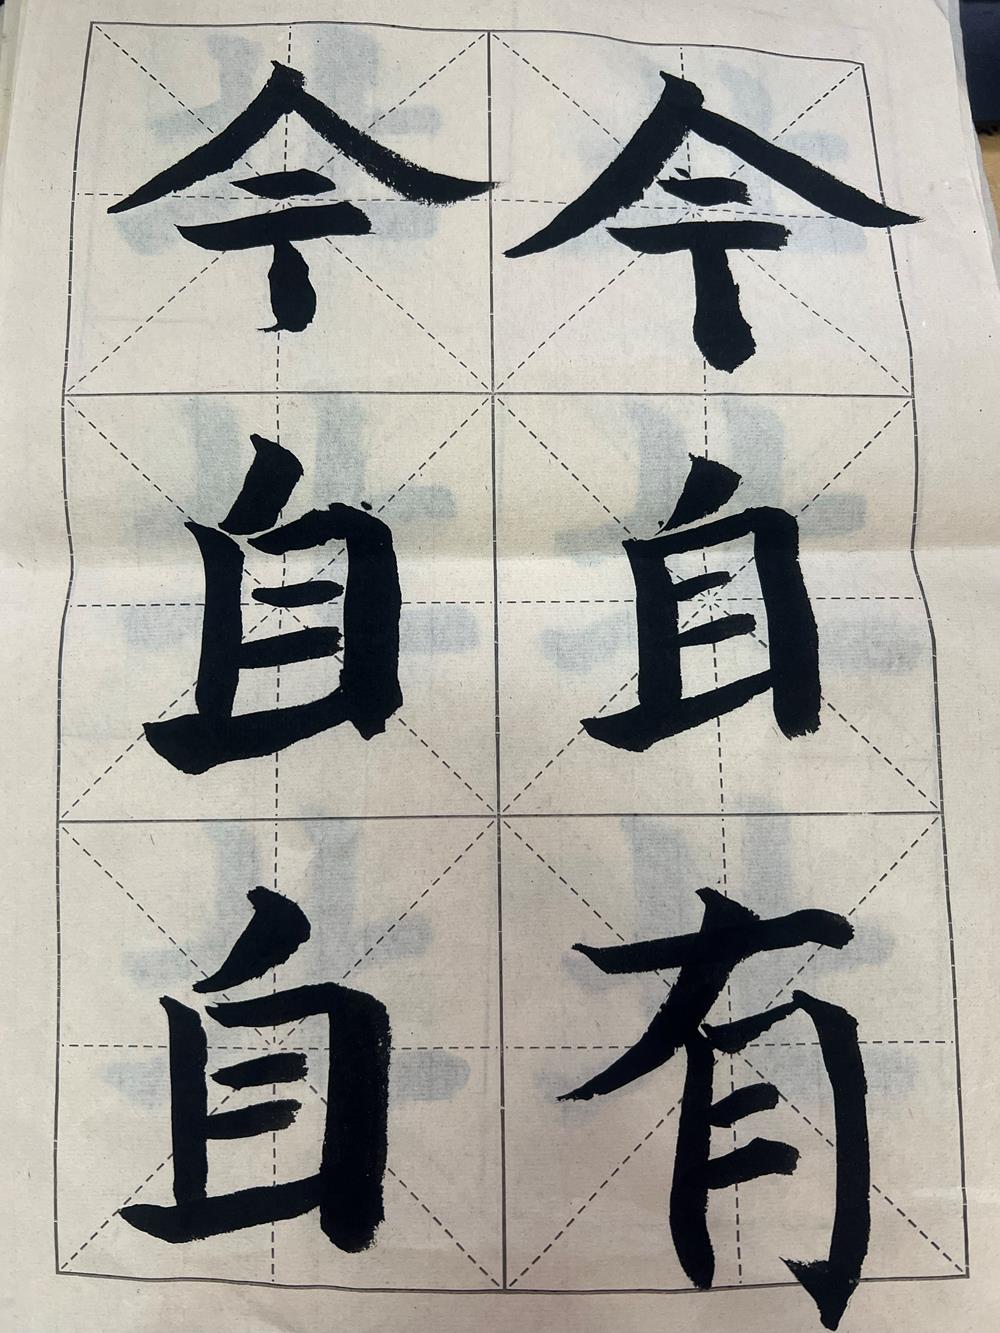 今今
自自
自有